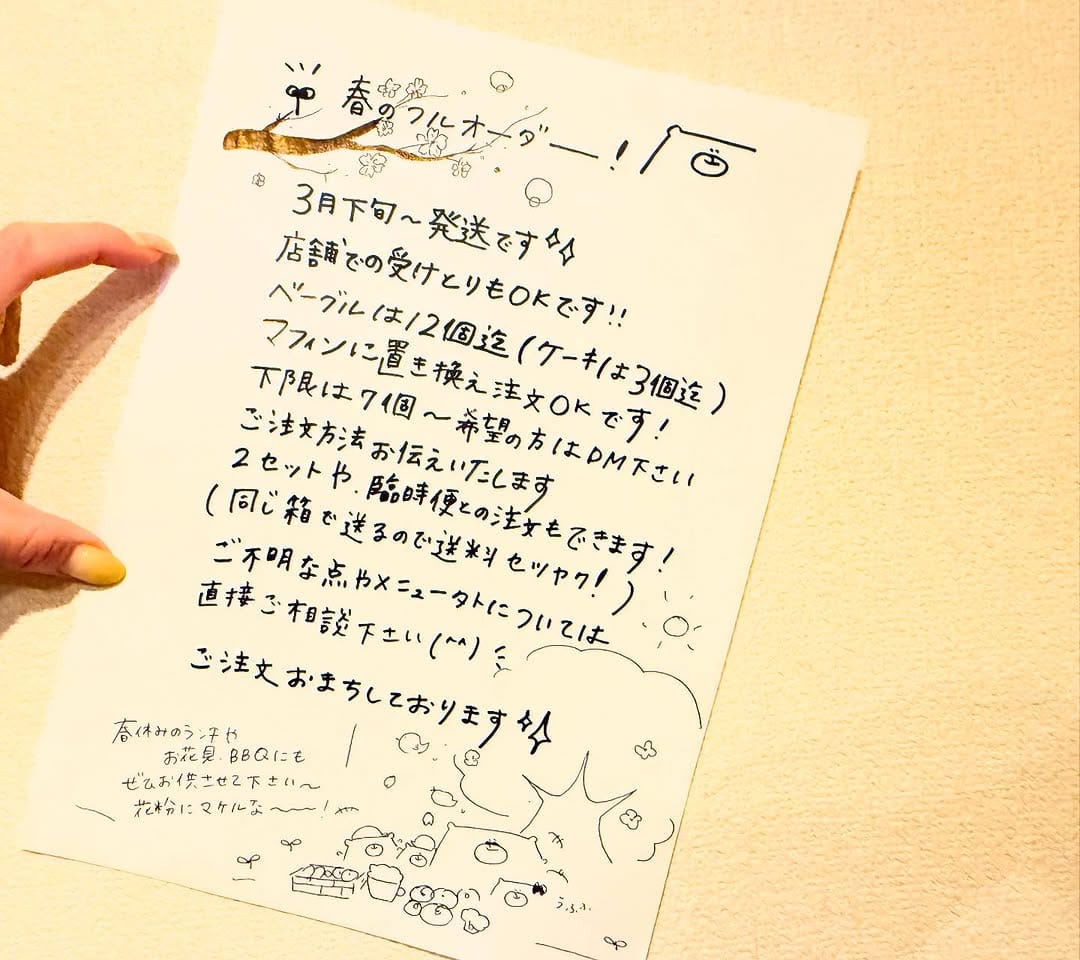 春のフルオーダー!
3月下旬〜発送です
店舗での受けとりもOKです!!
ベーグルは12個迄(ケーキは3個迄)
マフィンに置き換え注文OKです!
下限は7個〜希望の方はDM下さい
ご注文方法お伝えいたします
2セットや、臨時便との注文もできます!
(同じ箱で送るので送料セツヤク!)
ご不明な点やメニュータトについては
直接ご相談下さい(^^)
ご注文おまちしております
春休みのランチや
お花見、BBQにも
ぜひお供させて下さい〜
花粉にマケルな〜〜!
うふふ